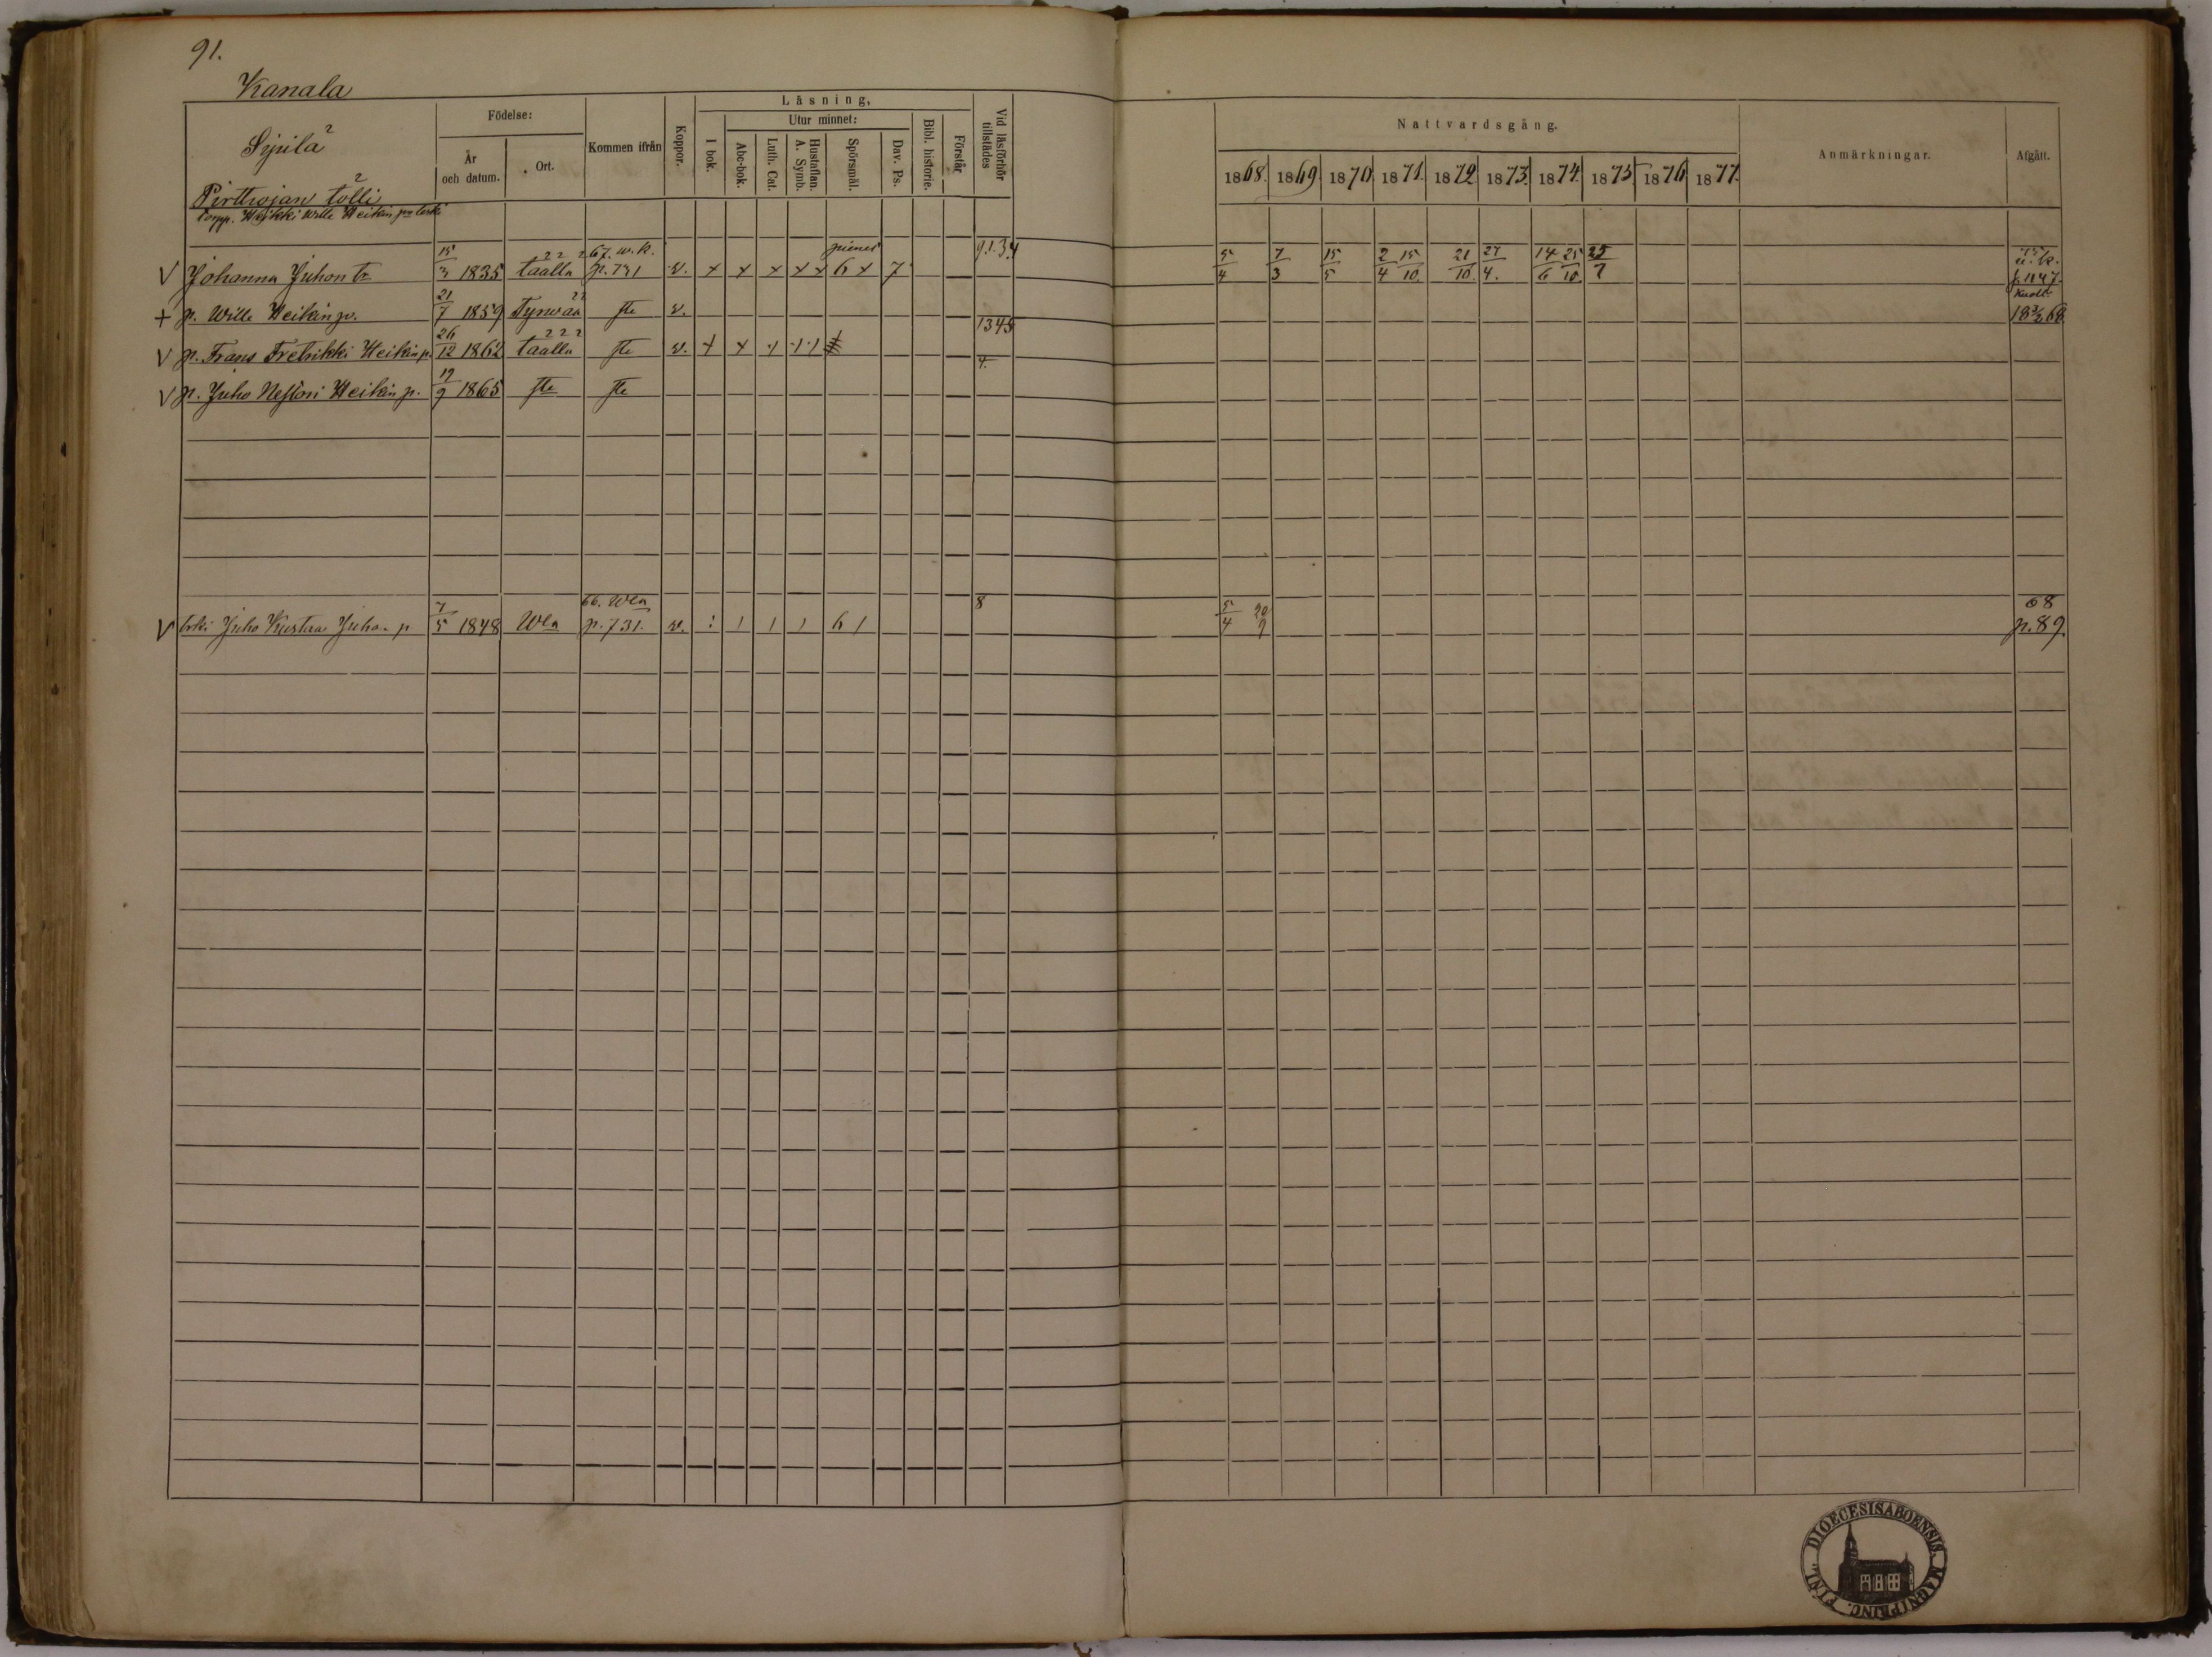 91.
Kanala
Sijvilä
Pirttiojan tölli
Torpp. Heikki Wille Heikin pn leski
Födelse:
År och datum.
Ort.
Kommen ifrån
Koppor.
Läsning,
I bok.
Utur minnet:
Abc-bok.
Luth. Cat.
Hustaflan. A. Symb.
Spörsmål.
Dav. Ps.
Bibl. historie.
Förstår
Vid läsförhör tillstädes
Nattvardsgång.
1868. 1869. 1870. 1871. 1872. 1873. 1874. 1875. 1876. 1877.
Anmärkningar.
Afgått.
V Johanna Juhon tr 15/3 1835 täällä 67. w.k. p. 731 v. x x x x x pienet 6 x 7 9.1.3.4 5/4 7/3 15/5 2/4 15/10 21/10 27/4. 14/6 25/10 25/7 p. 1147.
+ p. Wille Heikin p. 21/7 1859 Tyrwää ste v. Kuoll. 18 3/2 68.
V p. Frans Fretrikki Heikin p. 26/12 1862 täällä ste v. 1345
V p. Juho Nestori Heikin p. 19/9 1865 ste ste 4.
V trki Juho Kustaa Juhan p 7/5 1848 Wla 66. Wla p. 731. v. : 1 1 1 6 1 8 5/4 20/9 68 p. 89.
DIOECESIS ABOENSIS. MAGNI PRINC. FINL.